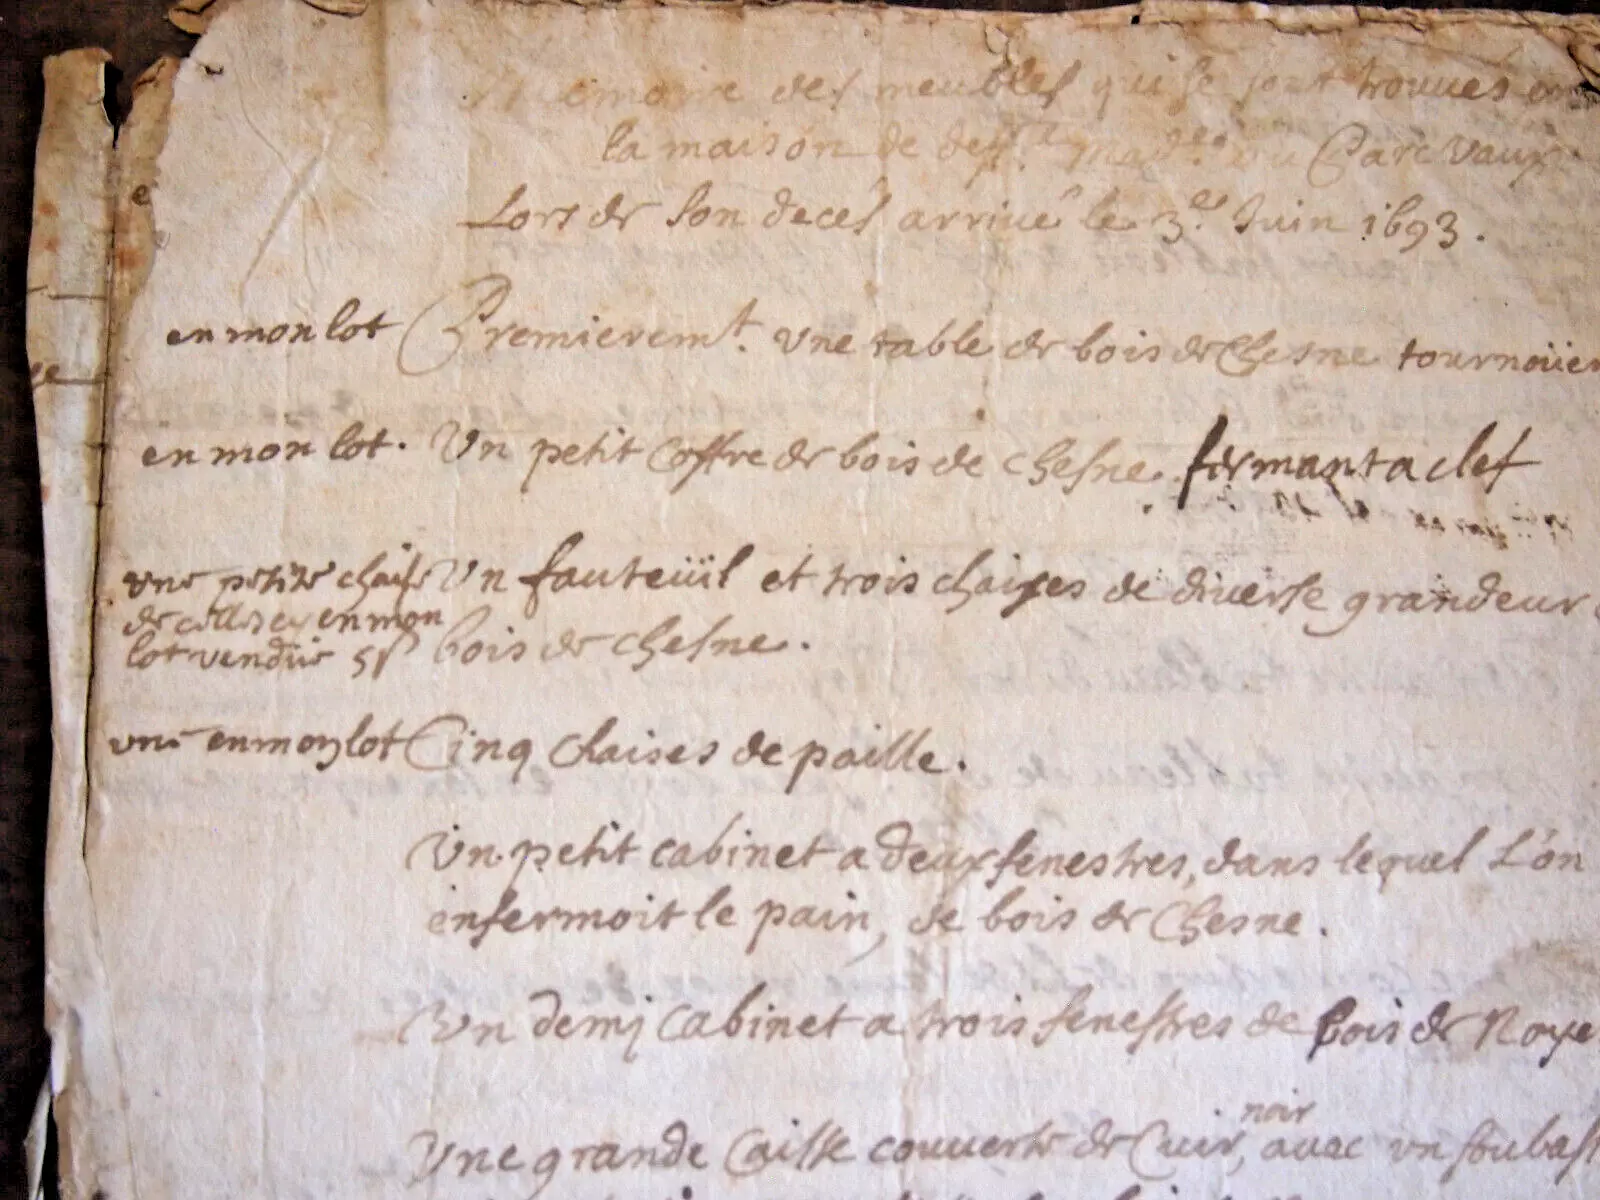 Memoire des meubles qui se sont trouués en
la maison de deffte. Madlle. du Parc Vaux
Lors de son deces arriué le 3.es Juin 1693.
en mon lot Premieremt. Vne table de bois de Chesne tournoüer
en mon lot. Vn petit Coffre de bois de chesne. fermant a clef
vne petite chaise Vn fauteüil et trois chaises de diuerse grandeur
de celles cy en mon
lot vendüe 5s bois de chesne.
vne en mon lot Cinq chaises de paille.
Vn petit cabinet a deux fenestres, dans lequel L'on
enfermoit le pain, de bois de Chesne.
Vn demj cabinet a trois fenestres de bois de Noye
noir
Vne grande Caisse couuerte de Cuir, auec vn soubast